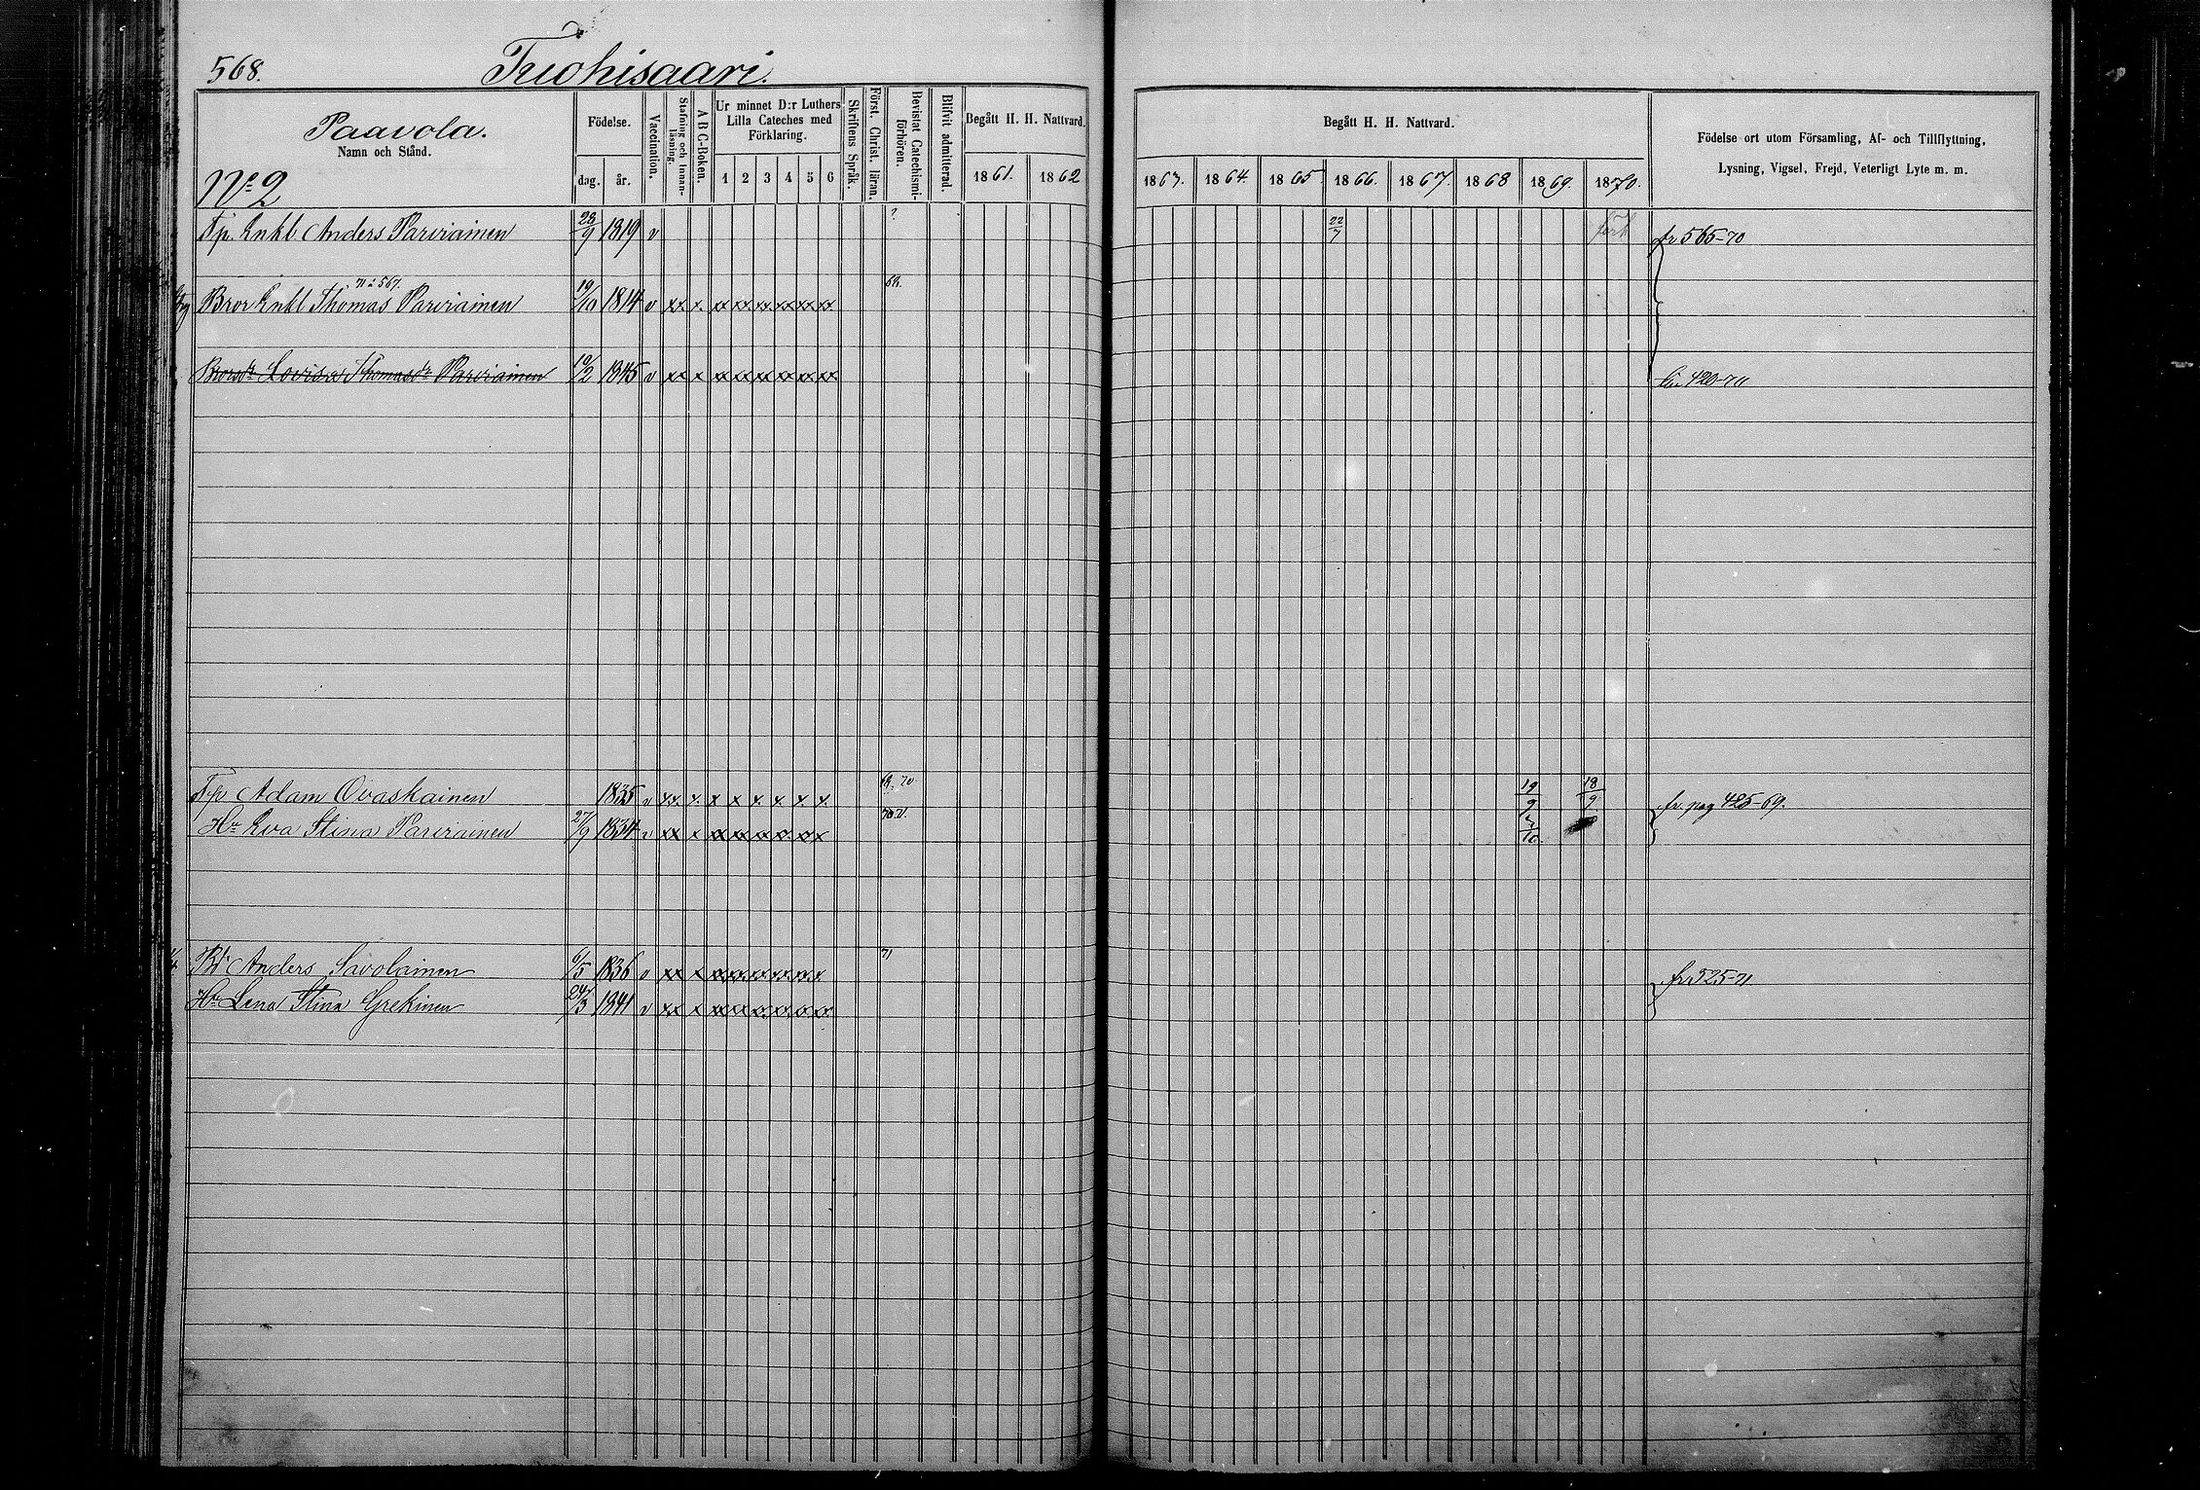 568.
Truohisaari.
Paavola.
Namn och Stånd.
No 2
Födelse.
dag. år.
Vaccination.
Stafning och Innan-läsning.
A B C-Boken.
Ur minnet D:r Luthers Lilla Cateches med Förklaring.
1 2 3 4 5 6
Skriftens Språk.
Först. Christ. läran.
Bevistat Catechismi-förhören.
Blifvit admitterad.
Begått H. H. Nattvard.
1861. 1862
Begått H. H. Nattvard.
1863. 1864. 1865. 1866. 1867. 1868 1869. 1870.
Födelse ort utom Församling, Af- och Tillflyttning,
Lysning, Vigsel, Frejd, Veterligt Lyte m. m.
Tp. Enkl. Anders Parviainen 28/9 1819 v ? 22/7 fr 565-70
n: 567.
Bror Enkl Thomas Parviainen 19/10 1814 v xx. x. xx xx xx xx xx xx
Brorsdr Lovisa Thomasdr Parviainen 10/2 1845 v xx x xx xx xx xx xx xx 420-70
Tp Adam Ovaskainen 1835 v xx. x. x x x. x. x. x. 70 19/9 18/9 fr. pag 425-69.
Hu Eva Stina Parviainen 27/9 1834 v xx x xx xx xx xx xx xx 70 /10.
Bd Anders Savolainen 6/5 1836 v xx x xx xx xx xx xx xx 71 fr 525-71.
Hu Lena Stina Grekinen 24/3 1841 v xx x xx xx xx xx xx xx